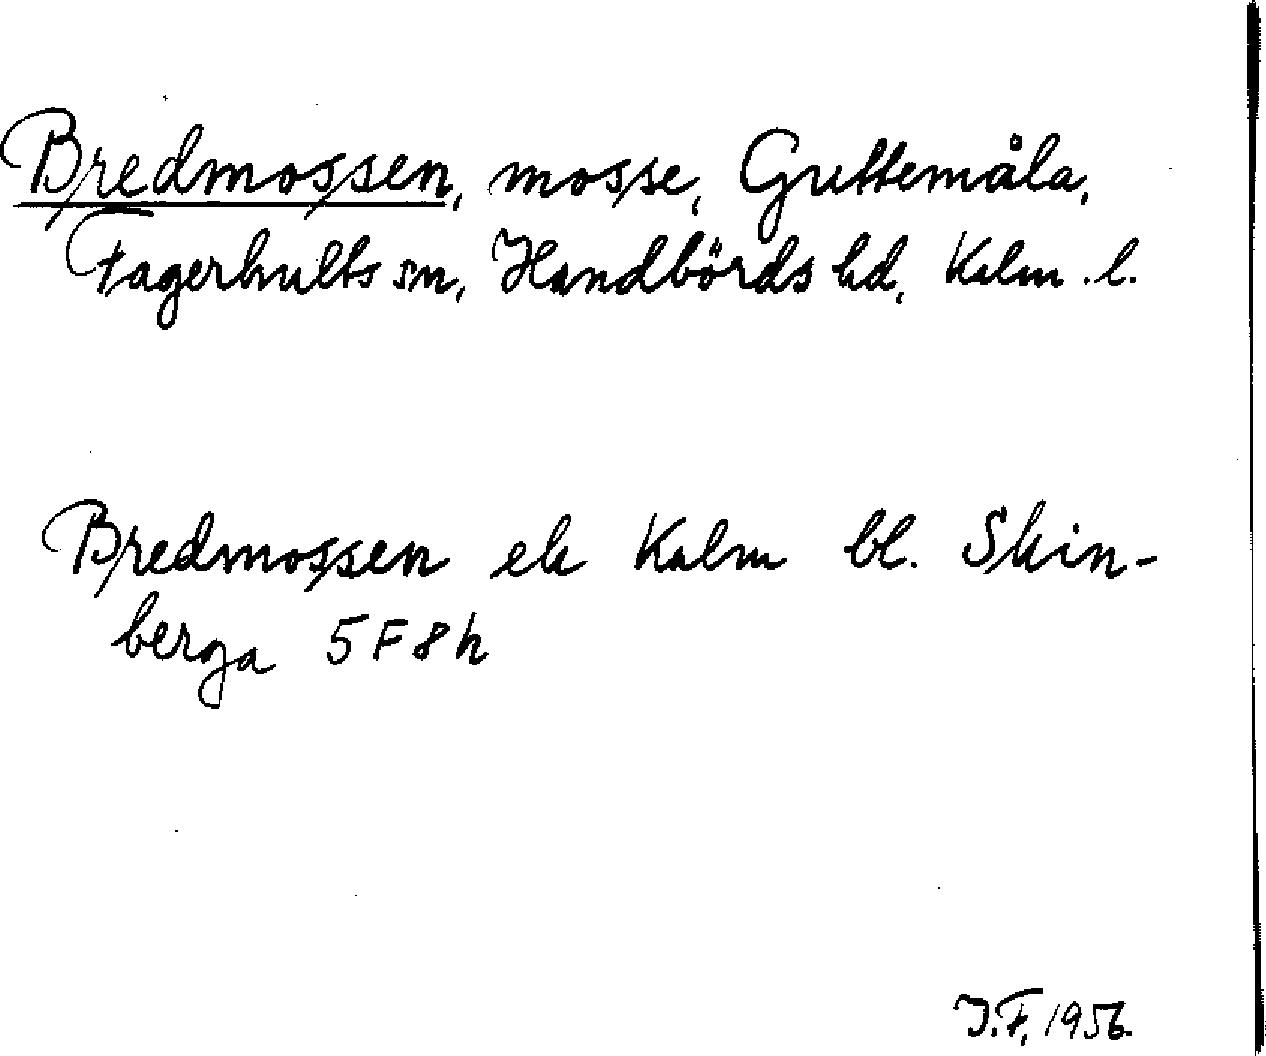 Bredmossen, mosse, Guttemåla,
Fagerhults sn, Handbörds hd, Kalm. l.
Bredmossen ek Kalm bl. Skin-
berga 5F8h
J.F. 1956.